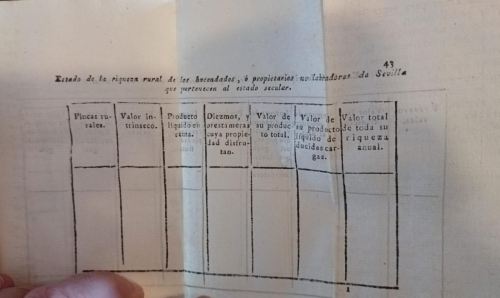 43
Estado de la riqueza rural de los hacendados, ó propietarios no labradores de Sevilla
que pertenecen al estado secular.
Fincas ru-
rales.
Valor in-
trinseco.
Producto
líquido en
renta.
Diezmos, y
prestameras
cuya propie-
dad disfru-
tan.
Valor de
su produc-
to total.
Valor de
su producto
líquido de
ducidas car-
gas.
Valor total
de toda su
riqueza
anual.